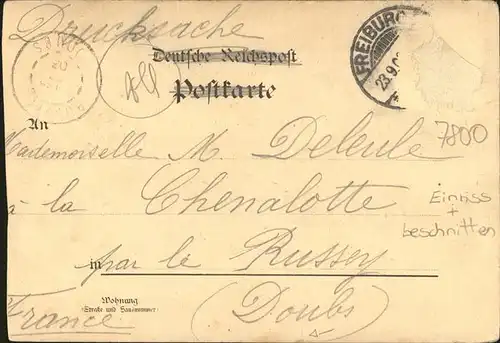 Drucksache
Deutsche Reichspost
Postkarte
FREIBURG
23.9.0
7800
An
Mademoiselle M. Deleule
à la Chenalotte
Einriss
+
beschnitten
in par le Russey
Wohnung
(Straße und Hausnummer)
(Doubs)
France